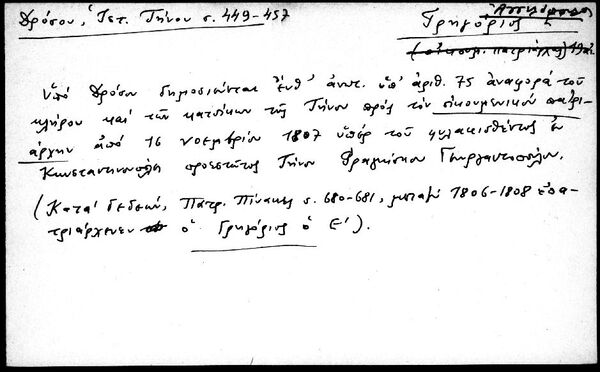 Δρόσου, Ἱστ. Τήνου σ. 449-457
Γρηγόριος Ε΄
(οἰκουμ. πατριάρχης) 19 αἰ.
Ὑπό Δρόσου δημοσιεύεται ἔνθ' ἀνωτ. ὑπ' ἀριθ. 75 ἀναφορά τοῦ
κλήρου καί τῶν κατοίκων τῆς Τήνου πρός τόν οἰκουμενικόν πατρι-
άρχην ἀπό 16 νοεμβρίου 1807 ὑπέρ τοῦ φυλακισθέντος ἐν
Κωνσταντινουπόλει προεστῶτος Τήνου Φραγκίσκου Γεωργαντοπούλου.
(Κατά Γεδεών, Πατρ. Πίνακες σ. 680-681, μεταξύ 1806-1808 ἐπα-
τριάρχευεν ὁ Γρηγόριος ὁ Ε΄).